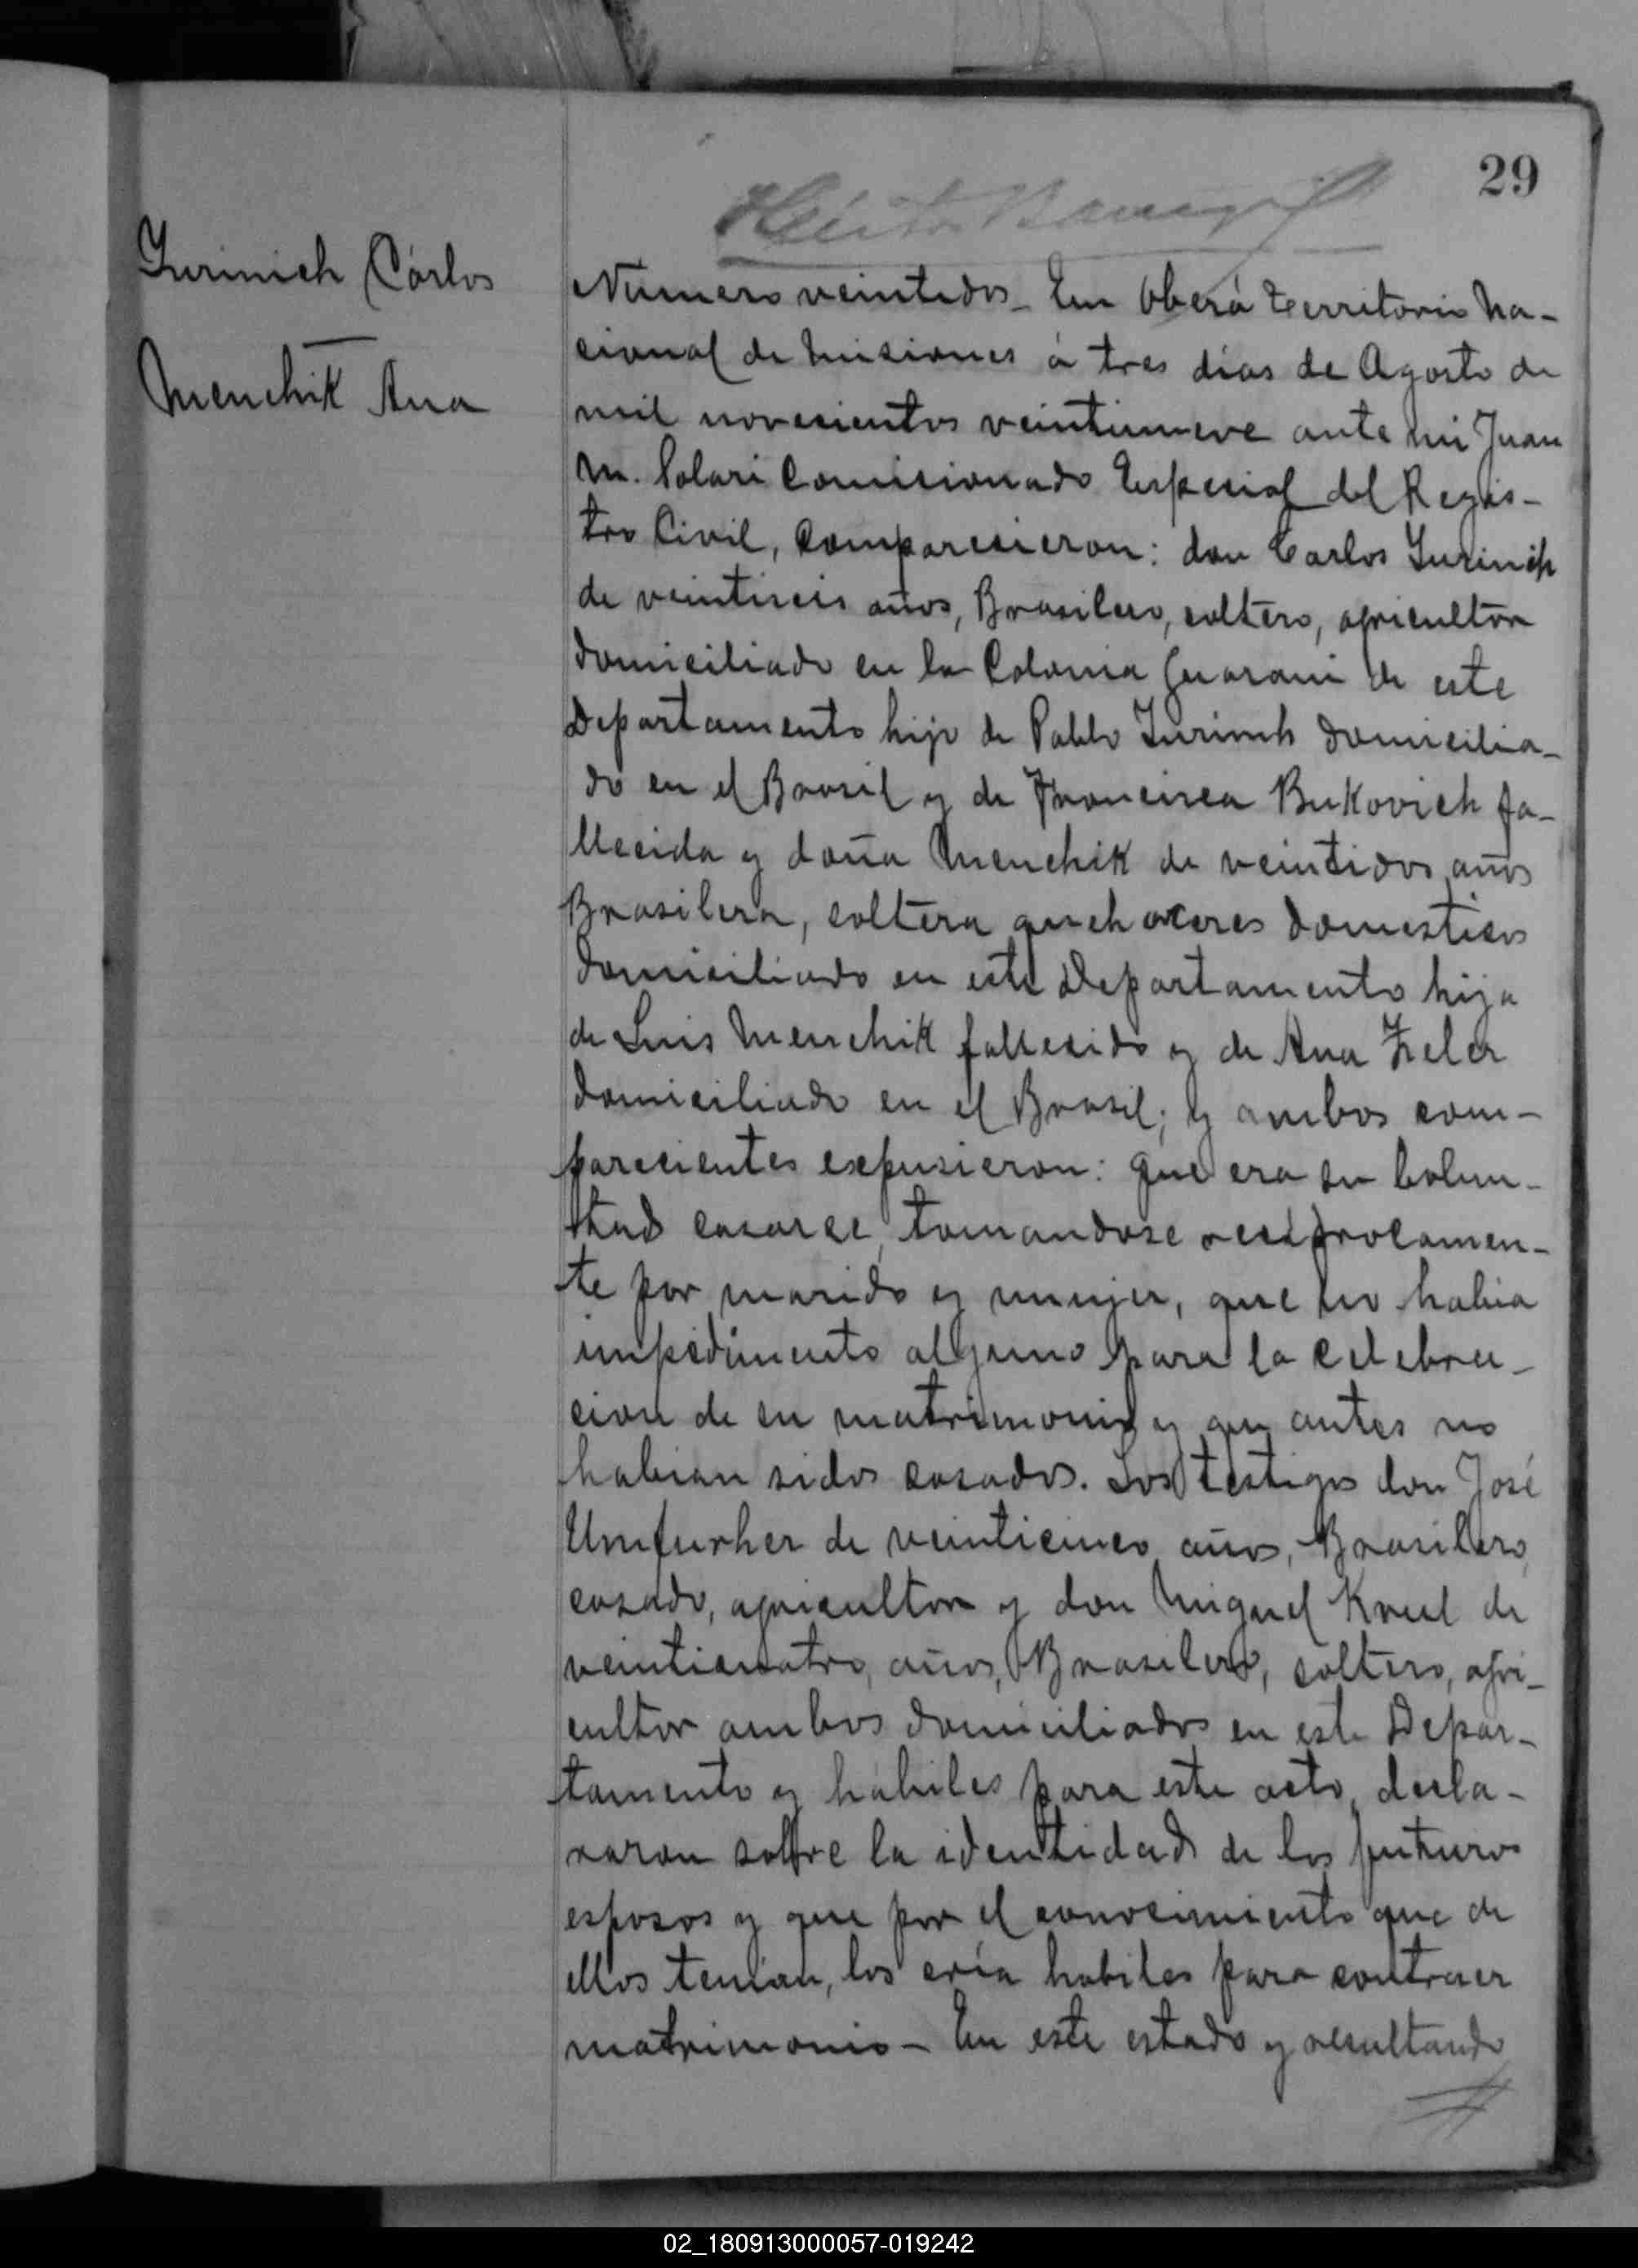 29
Yurinich Cárlos
Menchik Ana
Número veintidos_ En Oberá territorio Na-
cional de Misiones á tres días de Agosto de
mil novecientos veintinueve ante mi Juan
M. Solari Comisionado Especial del Regis-
tro Civil, Comparecieron: don Carlos Yurinich
de veintiseis años, Brasilero, soltero, agricultor
domiciliado en la Colonia Guarani de este
Departamento hijo de Pablo Yurinich domicilia-
do en el Brasil y de Francisca Bukovich fa-
llecida y doña Menchik de veintidos años
Brasilera, soltera quehaceres domesticos
domiciliado en este Departamento hija
de Luis Menchik fallesido y de Ana Zeler
domiciliado en el Brasil; y ambos com-
parecientes expusieron: que era su bolun-
tad casarce, tomandose reciprocamen-
te por marido y mujer, que no habia
impedimento alguno para la celebra-
cion de su matrimonio y que antes no
habian sidos casados. Los testigos don José
Umfurher de veinticinco años, Brasilero,
casado, agricultor y don Miguel Kreul de
veinticuatro, años, Brasilero, soltero, agri-
cultor ambos domiciliados en este Depar-
tamento y hábiles para este acto, decla-
raron sobre la identidad de los futuros
esposos y que por el conocimiento que de
ellos tenian, los cría habiles para contraer
matrimonio - En este estado y resultando
02_180913000057-019242